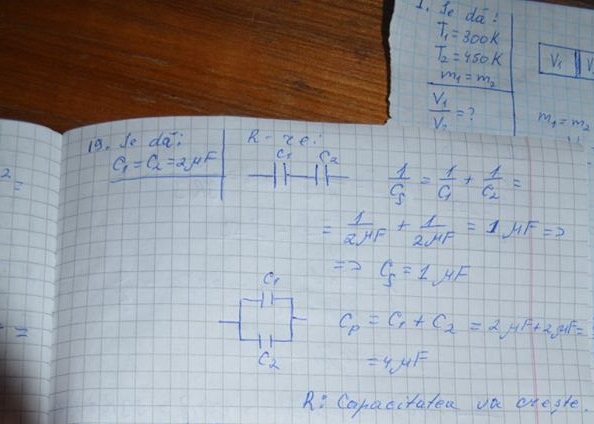 1. Se dă:
T₁ = 300K
T₂ = 450K
m₁ = m₂
V₁/V₂ = ?
V₁
m₁ = m₂
19. Se dă:
C₁ = C₂ = 2μF
R-re:
C₁ C₂
1/Cₛ = 1/C₁ + 1/C₂ =
= 1/2μF + 1/2μF = 1 μF =>
=> Cₛ = 1 μF
C₁
C₂
Cₚ = C₁ + C₂ = 2μF + 2μF =
= 4μF
R: Capacitatea va crește.
2 =
=